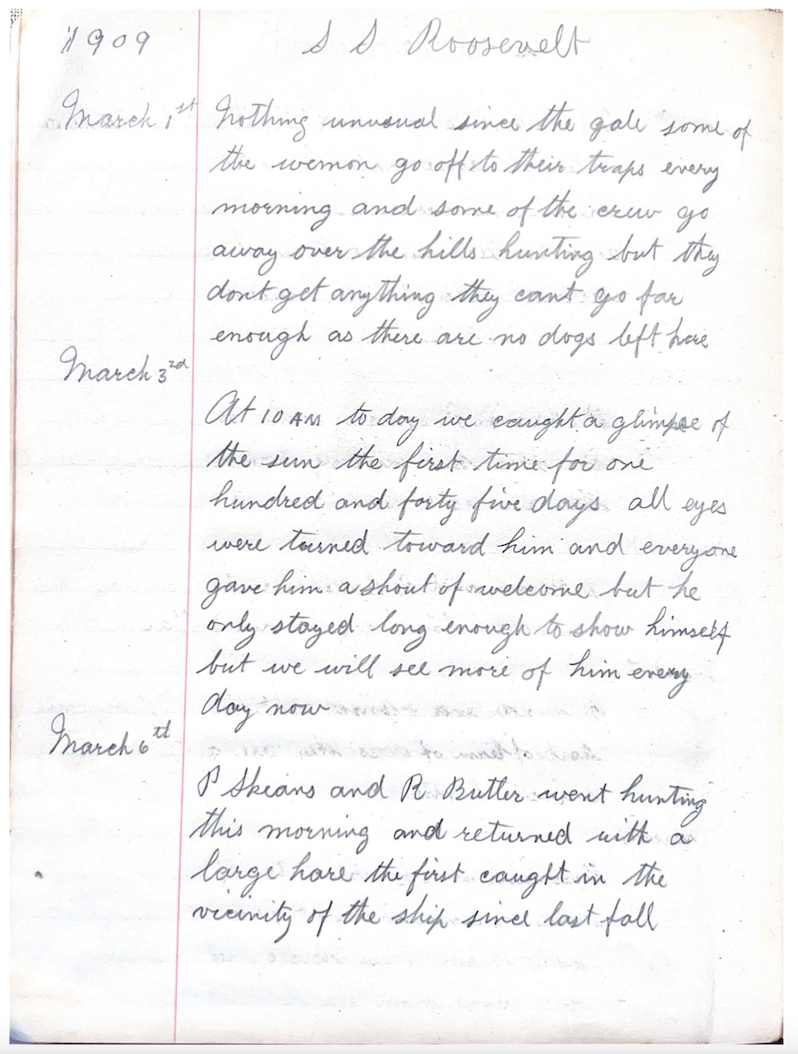 1909 S S Roosevelt
March 1st Nothing unusual since the gale some of
the wemon go off to their traps every
morning and some of the crew go
away over the hills hunting but they
dont get anything they cant go far
enough as there are no dogs left here
March 3rd
At 10 AM to day we caught a glimpse of
the sun the first time for one
hundred and forty five days. all eyes
were turned toward him and everyone
gave him a shout of welcome but he
only stayed long enough to show himself
but we will see more of him every
day now
March 6th
P Skeans and R Butler went hunting
this morning and returned with a
large hare the first caught in the
vicinity of the ship since last fall